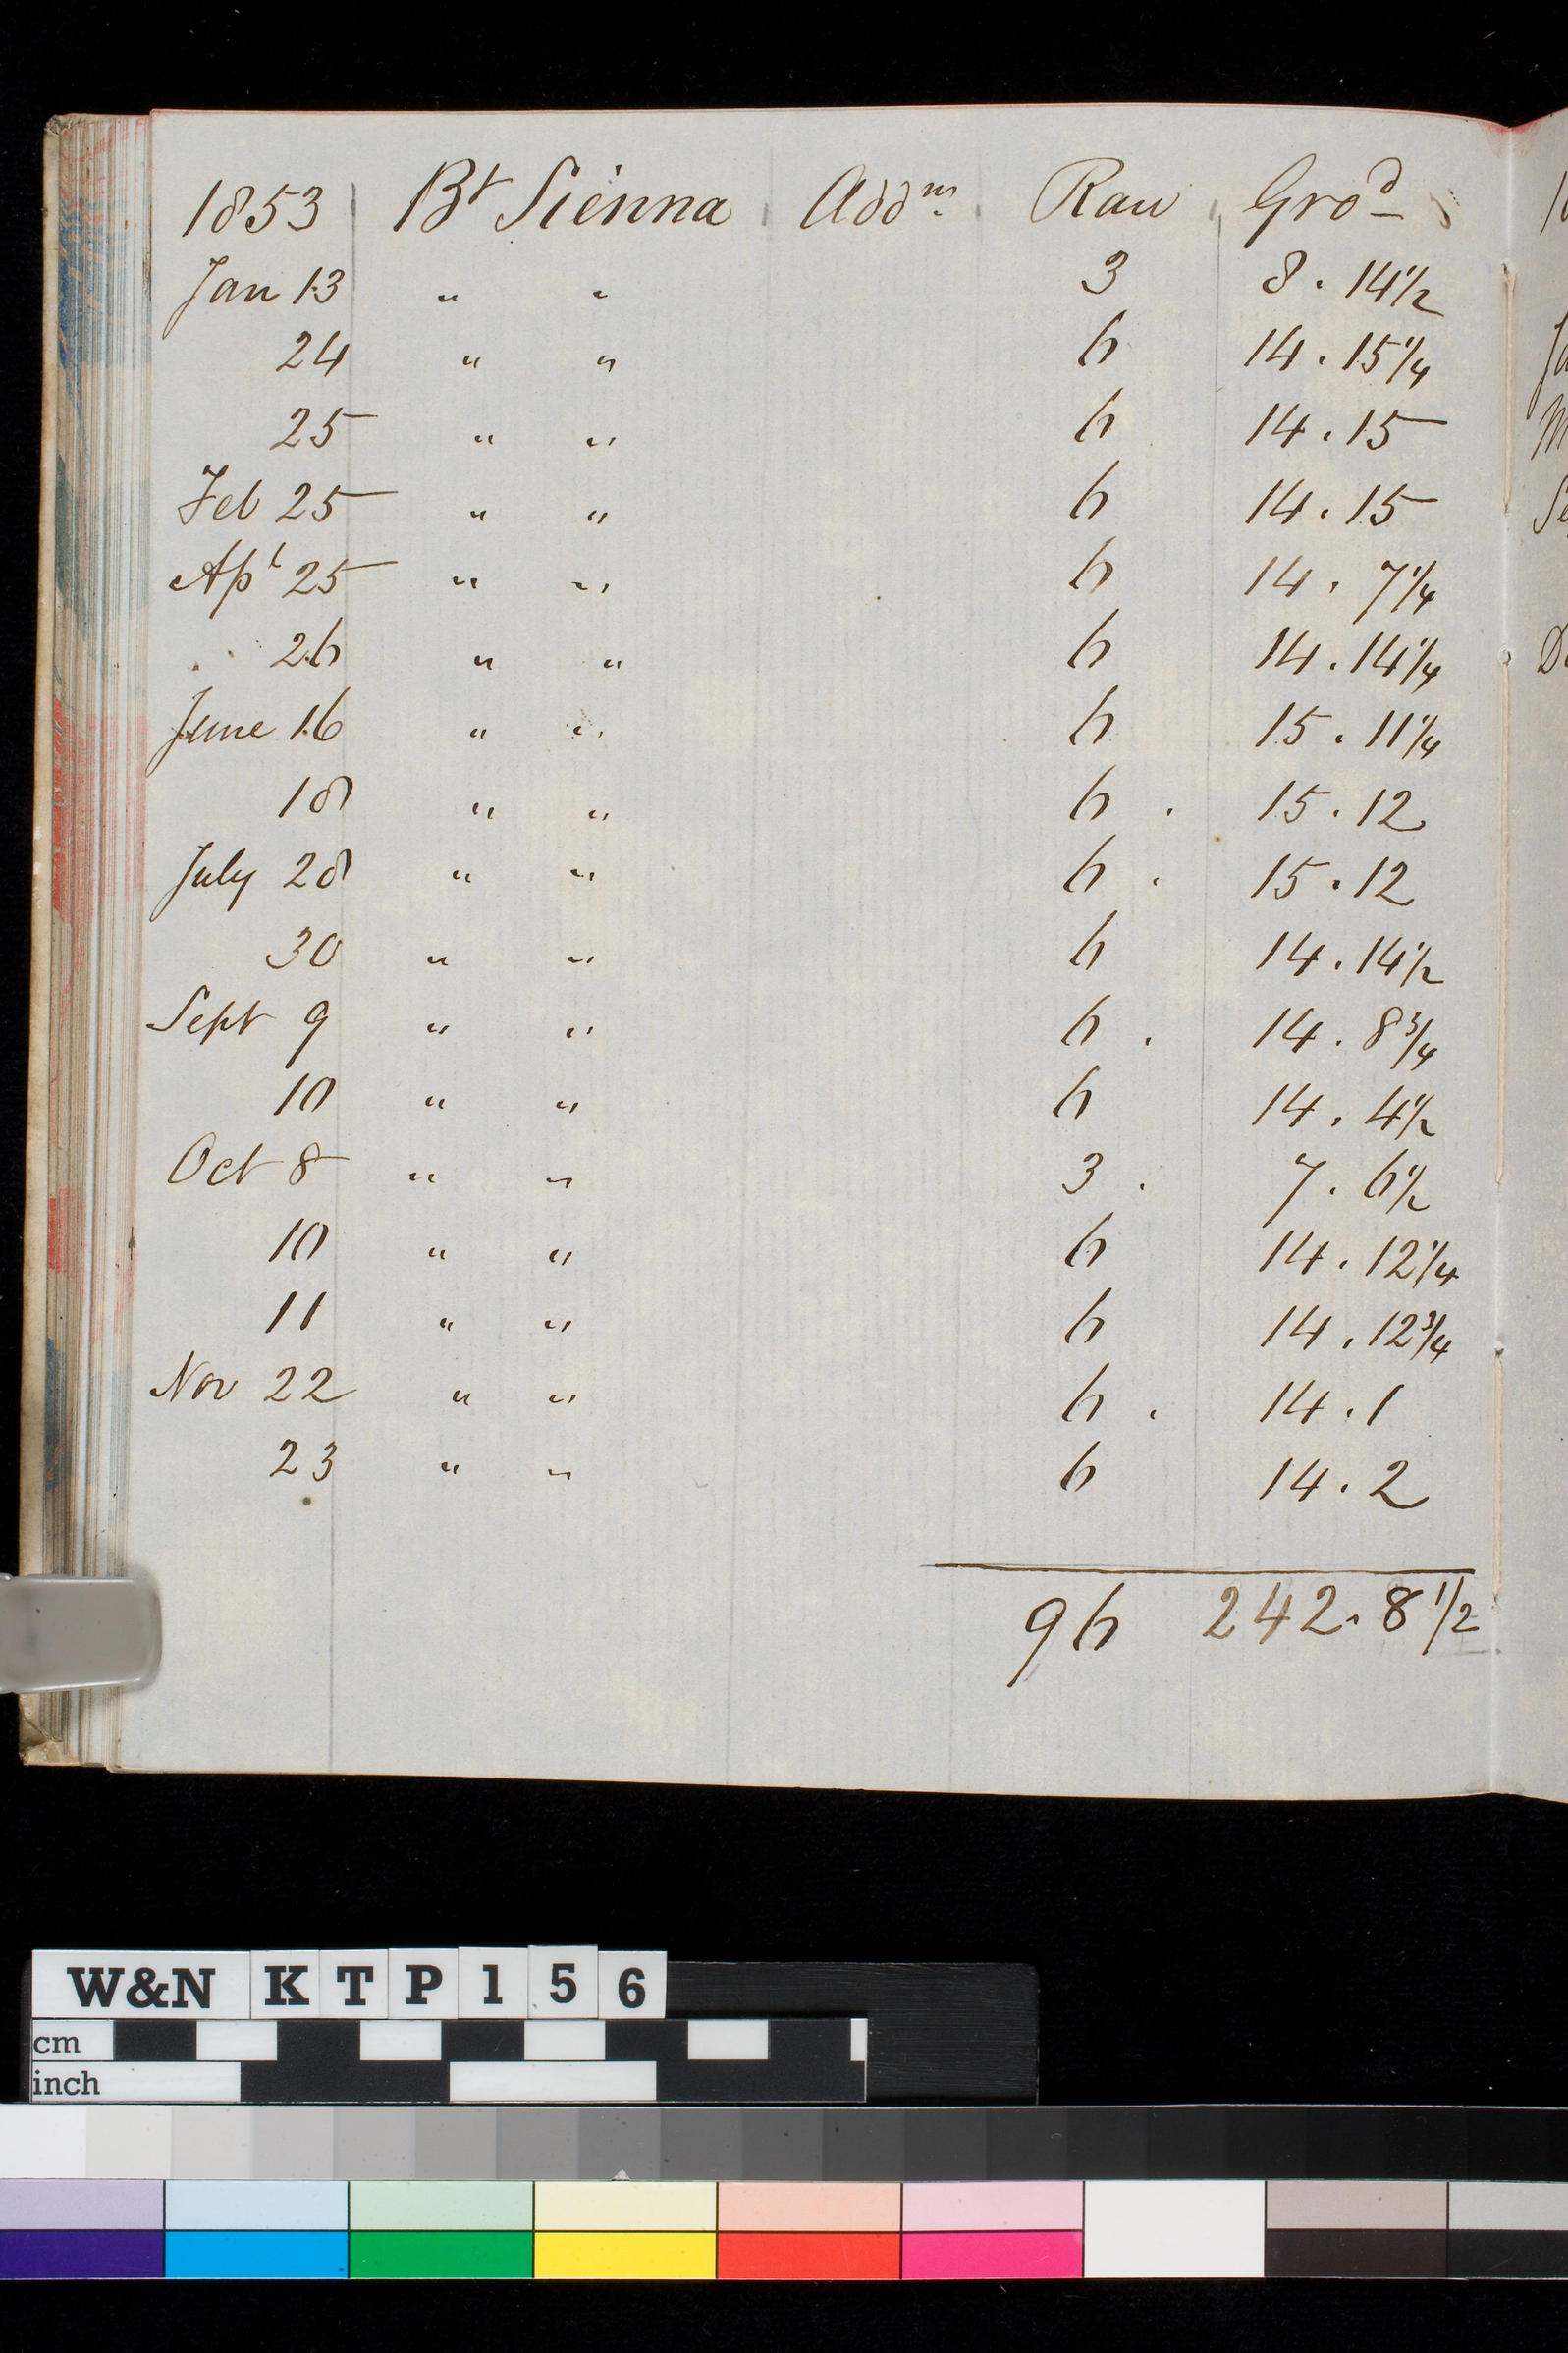 1853 Bt Sienna Addns. Raw Grod
Jan 13 " " 3 8 . 14 1/2
24 " " 6 14 . 15 1/4
25 " " 6 14 . 15
Feb 25 " " 6 14 . 15
Apl 25 " " 6 14 . 7 1/4
26 " " 6 14 . 14 1/4
June 16 " " 6 15 . 11 1/4
18 " " 6 . 15 . 12
July 28 " " 6 . 15 . 12
30 " " 6 14 . 14 1/2
Sept 9 " " 6 . 14 . 8 3/4
10 " " 6 14 . 4 1/2
Oct 8 " " 3 . 7 . 6 1/2
10 " " 6 14 . 12 1/4
11 " " 6 14 . 12 3/4
Nov 22 " " 6 . 14 . 1
23 " " 6 14 . 2
96 242 . 8 1/2
W&N KTP156
cm
inch